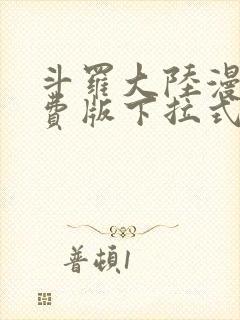 斗羅大陸漫
費版下拉式
普頓1